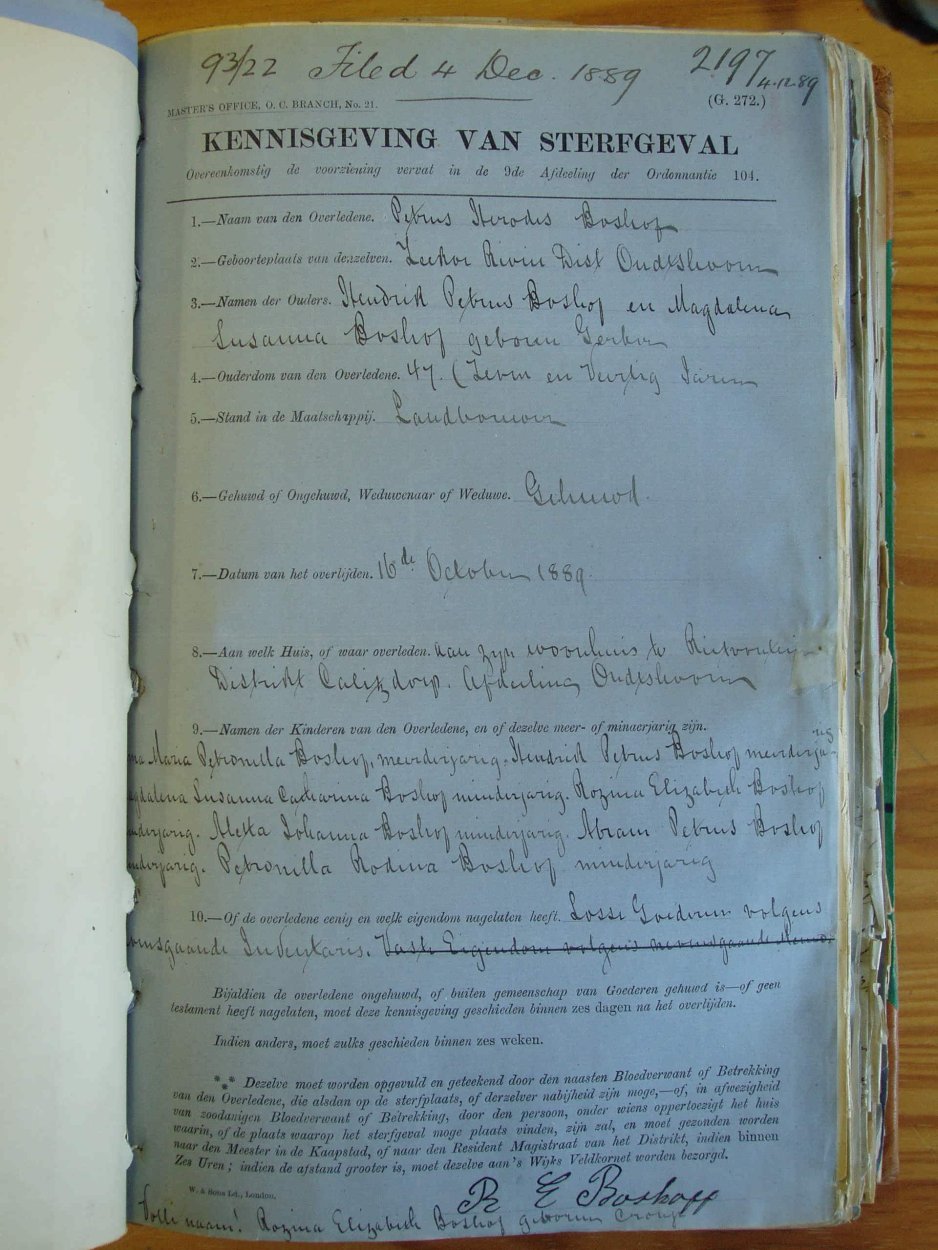 93/22 Filed 4 Dec. 1889 2197
4.12.89
MASTER'S OFFICE, O. C. BRANCH, No. 21. (G. 272.)
KENNISGEVING VAN STERFGEVAL
Overeenkomstig de voorziening vervat in de 9de Afdeeling der Ordonnantie 104.
1.—Naam van den Overledene. Petrus Herodes Boshof
2.—Geboorteplaats van denzelven. Rivier Dist Oudtshoorn
3.—Namen der Ouders. Hendrik Petrus Boshof en Magdalena
Susanna Boshof geboren Gerber
4.—Ouderdom van den Overledene. 47. (Zeven en Veertig Jaren
5.—Stand in de Maatschappij. Landbouwer
6.—Gehuwd of Ongehuwd, Weduwenaar of Weduwe. Gehuwd.
7.—Datum van het overlijden. 16de October 1889.
8.—Aan welk Huis, of waar overleden. aan zyn woonhuis te
Distrikt Calitzdorp. Afdeeling Oudtshoorn
9.—Namen der Kinderen van den Overledene, en of dezelve meer- of minderjarig zijn.
Maria Petronella Boshof, meerderjarig. Hendrik Petrus Boshof meerderjarig
Susanna Catharina Boshof minderjarig. Rozina Elizabeth Boshof
Aletta Johanna Boshof minderjarig. Abram Petrus Boshof
Petronella Rodina Boshof minderjarig
10.—Of de overledene eenig en welk eigendom nagelaten heeft. Losse Goederen volgens
Inventaris. Vaste Eigendom volgens
Bijaldien de overledene ongehuwd, of buiten gemeenschap van Goederen gehuwd is—of geen
testament heeft nagelaten, moet deze kennisgeving geschieden binnen zes dagen na het overlijden.
Indien anders, moet zulks geschieden binnen zes weken.
*** Dezelve moet worden opgevuld en geteekend door den naasten Bloedverwant of Betrekking
van den Overledene, die alsdan op de sterfplaats, of derzelver nabijheid zijn moge,—of, in afwezigheid
van zoodanigen Bloedverwant of Betrekking, door den persoon, onder wiens oppertoezigt het huis
waarin, of de plaats waarop het sterfgeval moge plaats vinden, zijn zal, en moet gezonden worden
naar den Meester in de Kaapstad, of naar den Resident Magistraat van het Distrikt, indien binnen
Zes Uren; indien de afstand grooter is, moet dezelve aan's Wijks Veldkornet worden bezorgd.
W. & Sons Ld., London.
R E Boshoff
Volle naam! Rozina Elizabeth Boshof geboren Cronje